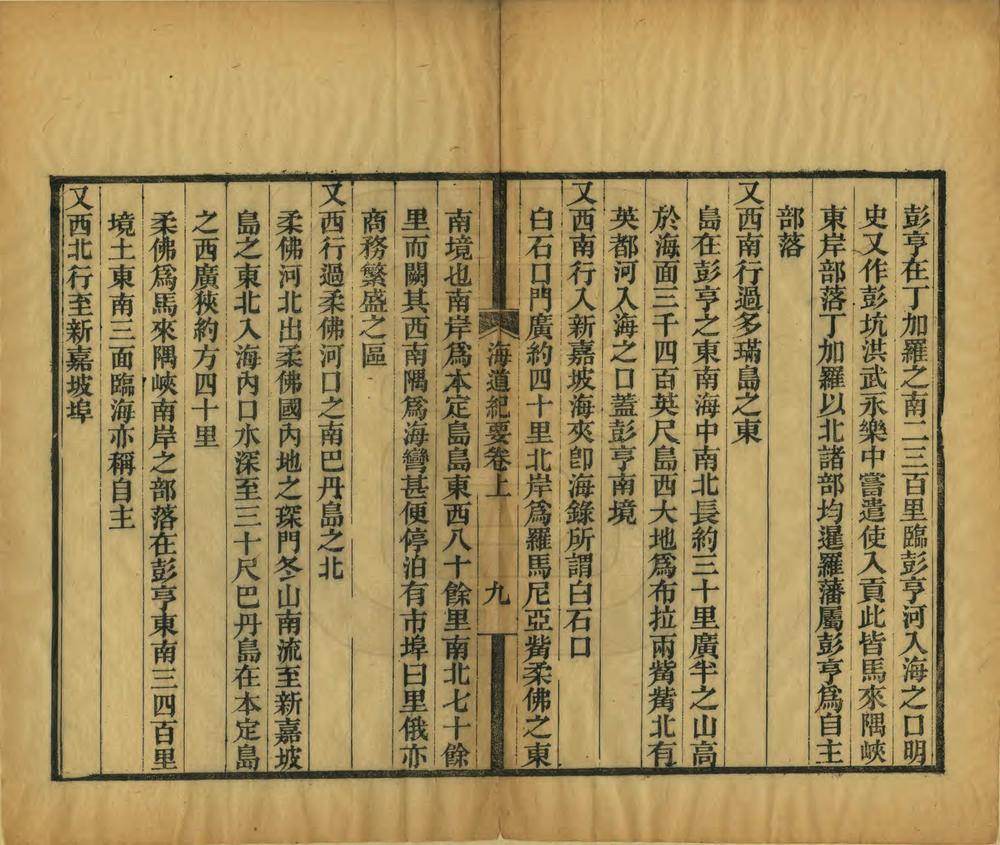 彭亨在丁加羅之南二三百里臨彭亨河入海之口明
史又作彭坑洪武永樂中嘗遣使入貢此皆馬來隅峽
東岸部落丁加羅以北諸部均暹羅藩屬彭亨爲自主
部落
又西南行過多瑙島之東
島在彭亨之東南海中南北長約三十里廣半之山高
於海面三千四百英尺島西大地爲布拉兩觜觜北有
英都河入海之口蓋彭亨南境
又西南行入新嘉坡海夾卽海錄所謂白石口
白石口門廣約四十里北岸爲羅馬尼亞觜柔佛之東
海道紀要卷上 九
南境也南岸爲本定島島東西八十餘里南北七十餘
里而闕其西南隅爲海彎甚便停泊有市埠曰里俄亦
商務繁盛之區
又西行過柔佛河口之南巴丹島之北
柔佛河北出柔佛國內地之琛門冬山南流至新嘉坡
島之東北入海內口水深至三十尺巴丹島在本定島
之西廣狹約方四十里
柔佛爲馬來隅峽南岸之部落在彭亨東南三四百里
境土東南三面臨海亦稱自主
又西北行至新嘉坡埠